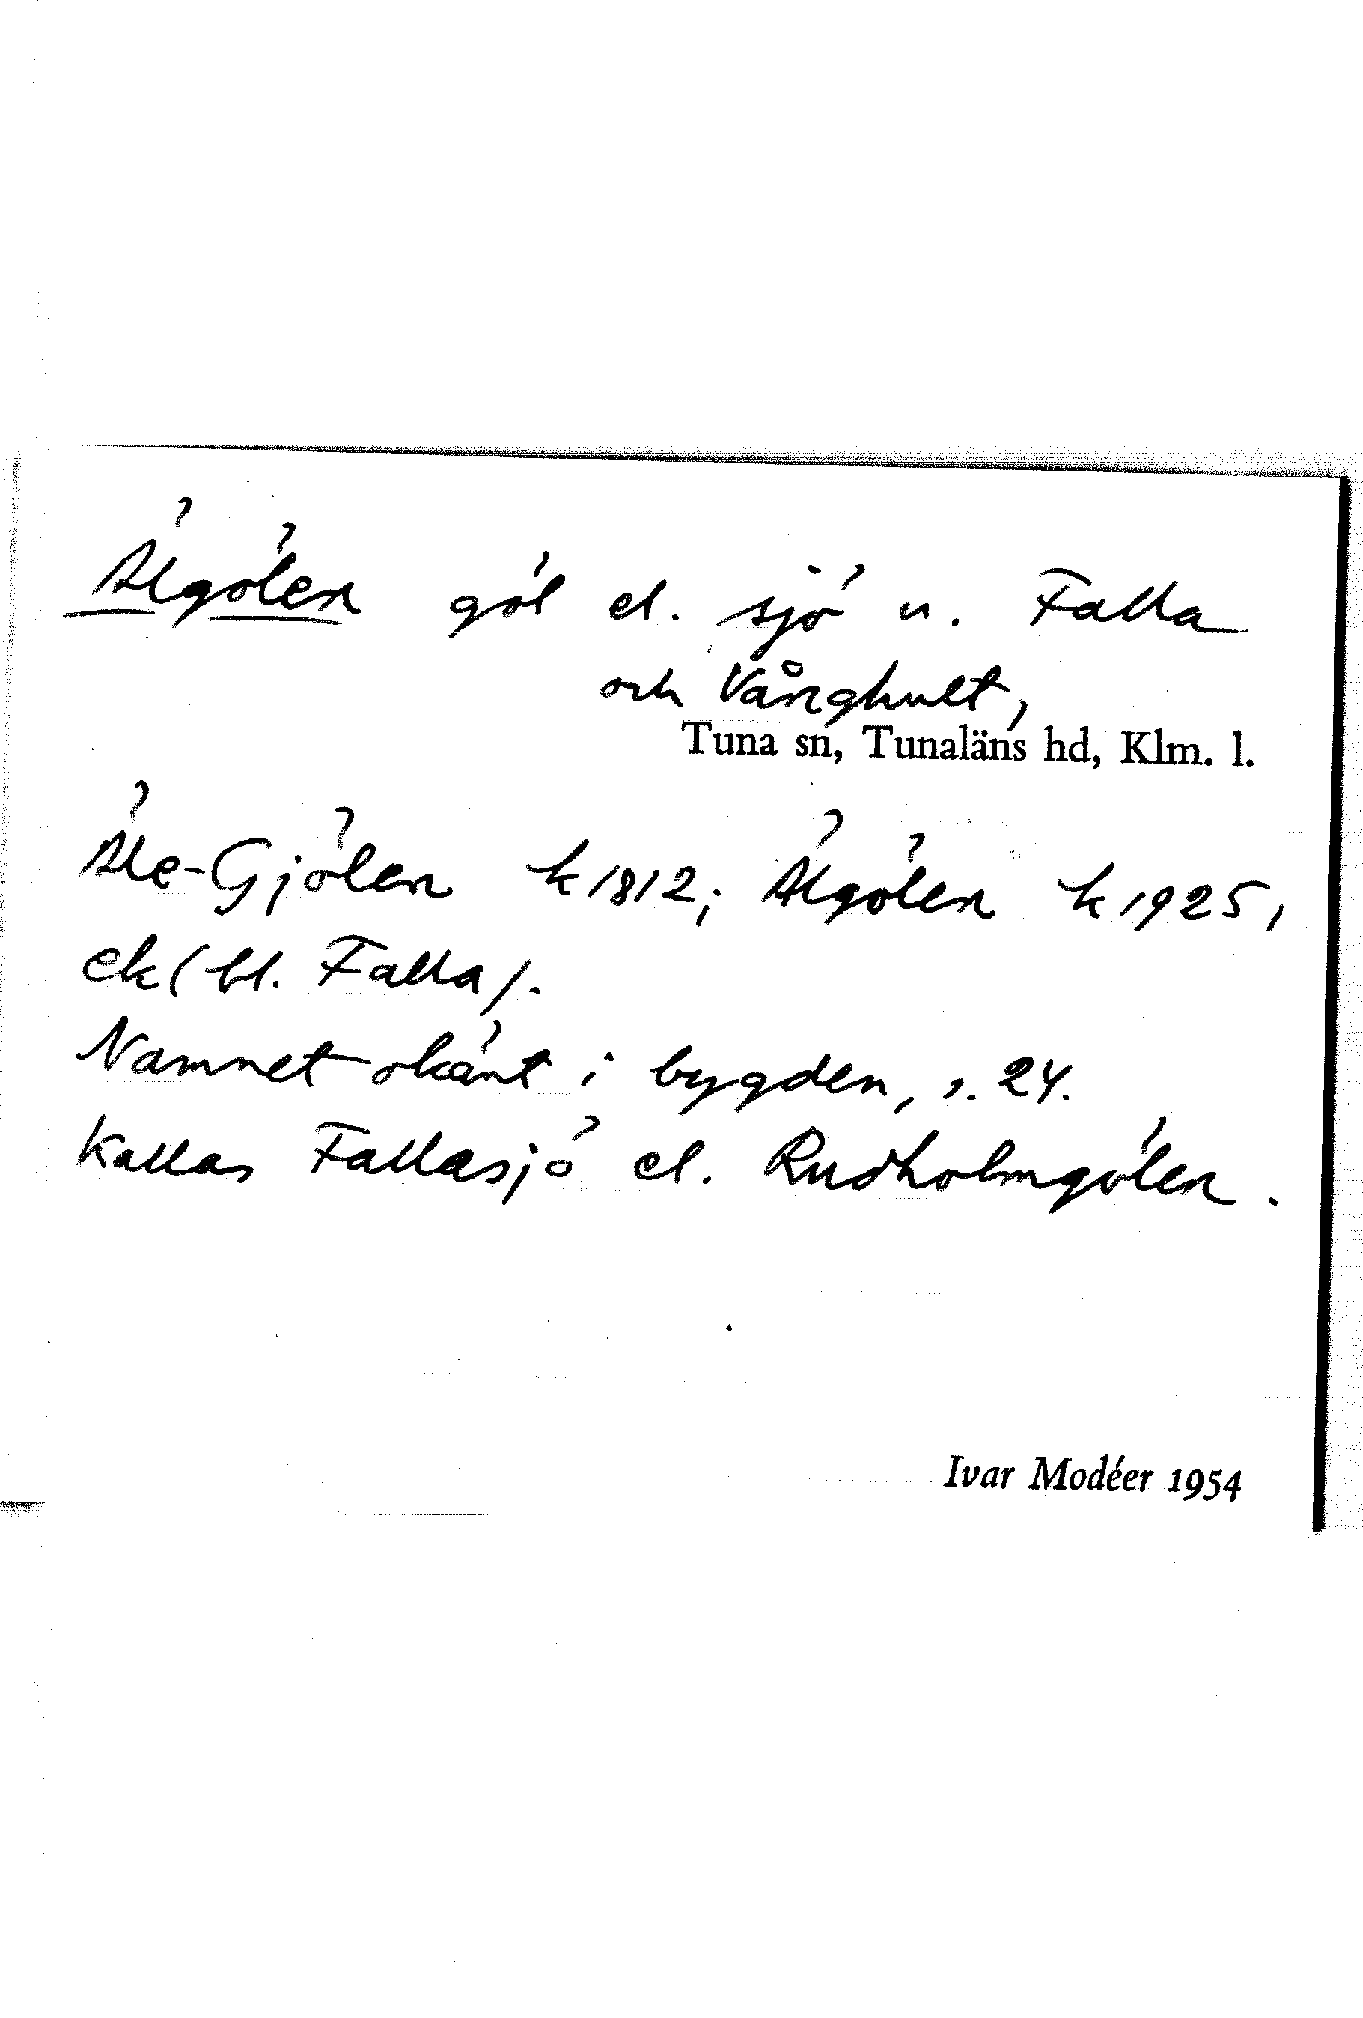 Älgölen göl el. sjö u. Falla
och Vånghult,
Tuna sn, Tunaläns hd, Klm. l.
Äle-Gjölen k 1812; Älgölen k 1925,
ek (bl. Falla).
Namnet okänt i bygden, s. 24.
Kallas Fallasjö el. Rudholmgölen.
Ivar Modéer 1954